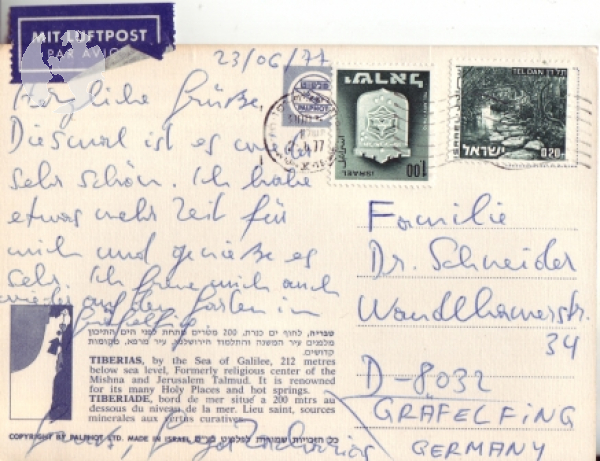 MIT LUFTPOST
PAR AVION
23/06/77
Herzliche Grüße,
Diesmal ist es wieder
sehr schön. Ich habe
etwas mehr Zeit für
mich und genieße es
sehr. Ich freue mich auch
wieder auf den Garten in
Gräfelfing
PALPHOT
77
ישראל
ISRAEL
1.00
TEL DAN תל דן
ISRAEL
ישראל
0.20
Familie
Dr. Schneider
Wandlhamerstr.
34
D-8032
GRÄFELFING
GERMANY
טבריה, לחוף ים כנרת, 200 מטרים מתחת לפני הים והתיכון
קדושים.
TIBERIAS, by the Sea of Galilee, 212 metres
below sea level, Formerly religious center of the
Mishna and Jerusalem Talmud. It is renowned
for its many Holy Places and hot springs.
TIBERIADE, bord de mer situé a 200 mtrs au
dessous du niveau de la mer. Lieu saint, sources
minerales aux vertus curatives.
COPYRIGHT BY PALPHOT LTD. MADE IN ISRAEL כל הזכויות שמורות לפלפוט